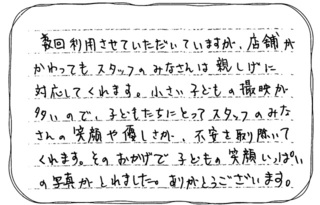 数回利用させていただいていますが、店舗が
かわってもスタッフのみなさんは親しげに
対応してくれます。小さい子どもの撮影が
多いので、子どもたちにとってスタッフのみな
さんの笑顔や優しさが、不安を取り除いて
くれます。そのおかげで子どもの笑顔いっぱい
の写真がとれました。ありがとうございます。